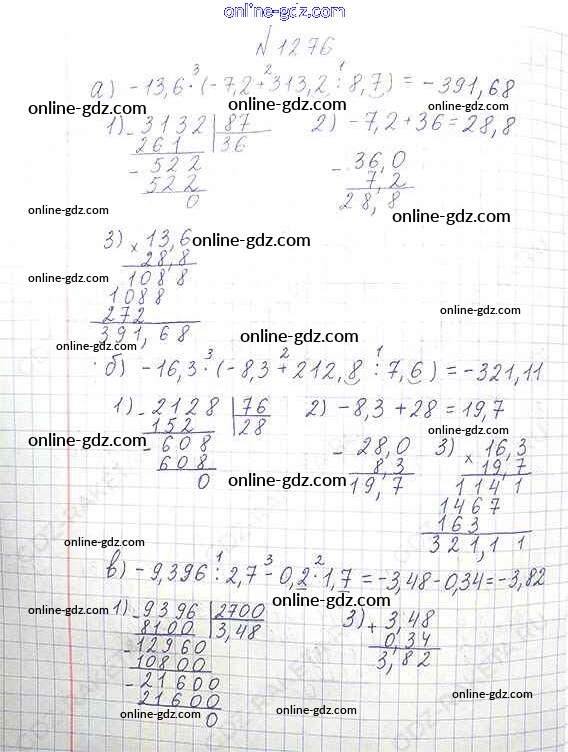 online-gdz.com
N1276
а) -13,6·(-7,2+313,2:8,7) = -391,68
3 2 1
online-gdz.com online-gdz.com online-gdz.com
1) - 3132 | 87 2) -7,2+36=28,8
261 36
online-gdz.com
- 522 - 36,0
522 7,2
0 28,8
online-gdz.com online-gdz.com
3) × 13,6 online-gdz.com
28,8
online-gdz.com
1088
1088
272
online-gdz.com
391,68
online-gdz.com
online-gdz.com
б) -16,3·(-8,3+212,8:7,6) = -321,11
3 2 1
online-gdz.com
1) - 2128 | 76 2) -8,3+28=19,7
152 28
online-gdz.com online-gdz.com
- 608 - 28,0 3) × 16,3
608 8,3 19,7
0 19,7 1141
online-gdz.com
1467
163
321,11
online-gdz.com online-gdz.com
в) -9,396:2,7-0,2·1,7=-3,48-0,34=-3,82
1 3 2
online-gdz.com online-gdz.com
1) - 9396 | 2700 3) + 3,48
8100 3,48 0,34
- 12960 3,82
10800
online-gdz.com
- 21600
21600
0
online-gdz.com online-gdz.com
online-gdz.com